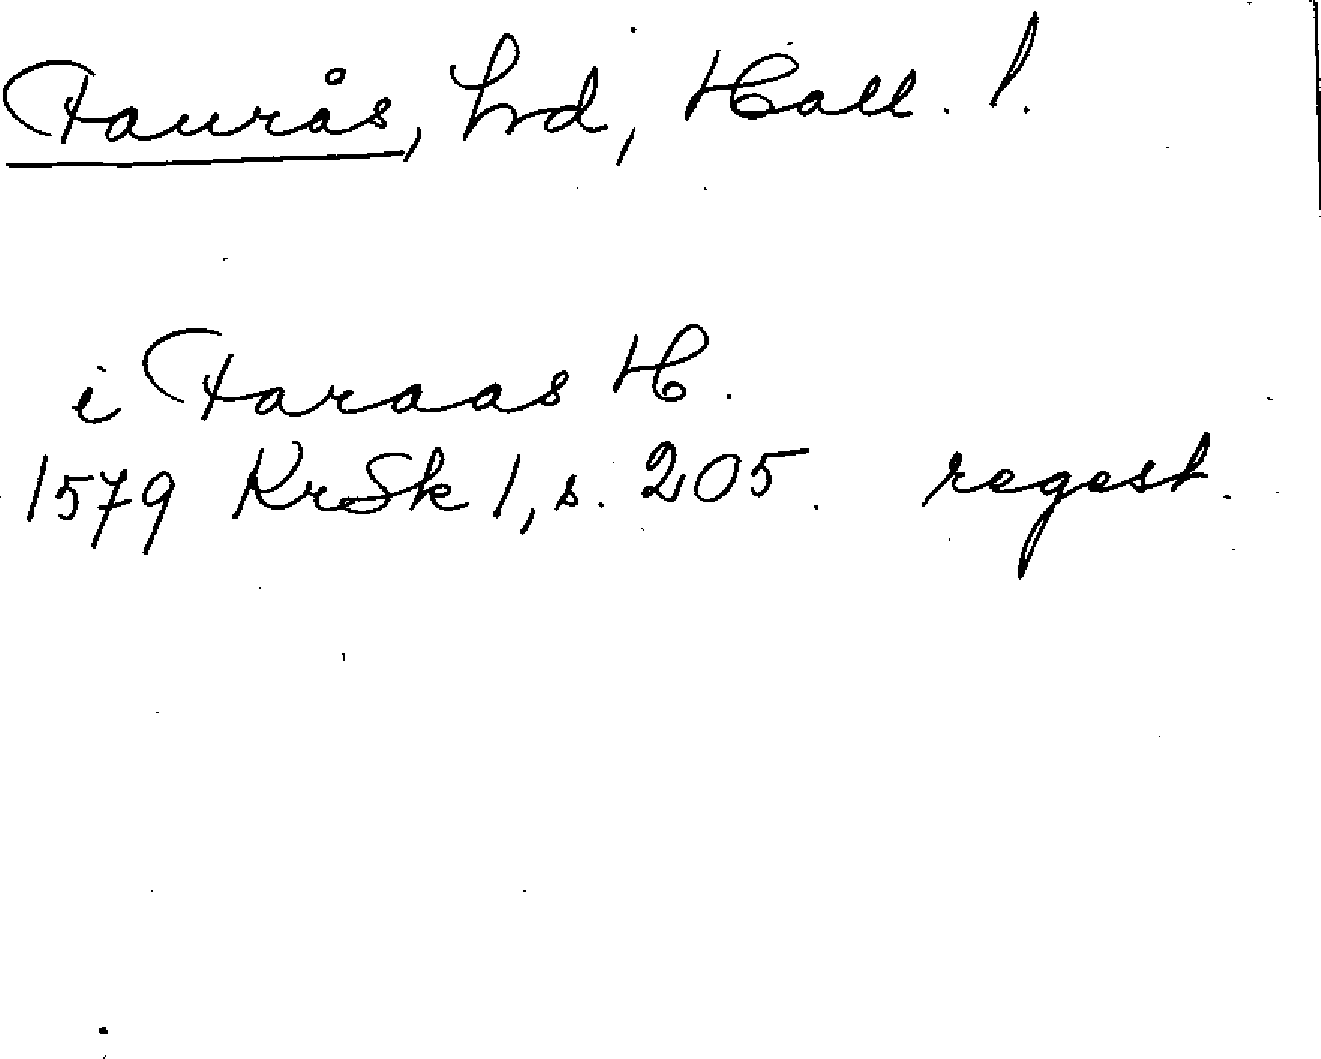 Faurås, hrd, Hall. l.
i Faraas H.
1579 KrSk 1, s. 205. regest.